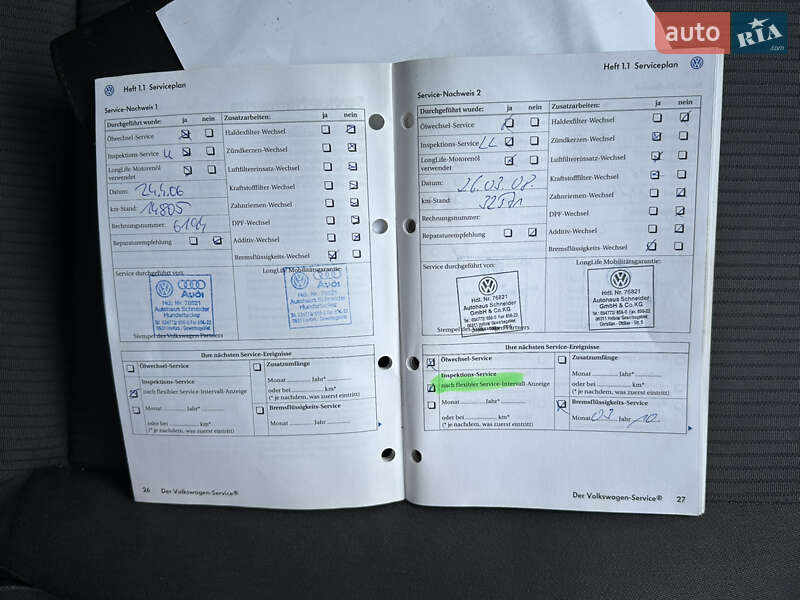 auto RIA .com
Heft 1.1 Serviceplan
Service-Nachweis 1
Durchgeführt wurde: ja nein
Ölwechsel-Service
Inspektions-Service LL
LongLife-Motorenöl
verwendet
Datum: 24.4.06
km-Stand: 14805
Rechnungsnummer: 6194
Reparaturempfehlung
Zusatzarbeiten: ja nein
Haldexfilter-Wechsel
Zündkerzen-Wechsel
Luftfiltereinsatz-Wechsel
Kraftstofffilter-Wechsel
Zahnriemen-Wechsel
DPF-Wechsel
Additiv-Wechsel
Bremsflüssigkeits-Wechsel
Service durchgeführt von:
LongLife Mobilitätsgarantie:
Audi
Hdl. Nr. 76821
Autohaus Schneider
Audi
Autohaus Schneider
Stempel des Volkswagen Partners
Ihre nächsten Service-Ereignisse
Ölwechsel-Service
Inspektions-Service
nach flexibler Service-Intervall-Anzeige
Monat Jahr*
oder bei km*
(* je nachdem, was zuerst eintritt)
Zusatzumfänge
Monat Jahr*
oder bei km*
(* je nachdem, was zuerst eintritt)
Bremsflüssigkeits-Service
Monat Jahr
26 Der Volkswagen-Service®
Heft 1.1 Serviceplan
Service-Nachweis 2
Durchgeführt wurde: ja nein
Ölwechsel-Service
Inspektions-Service LL
LongLife-Motorenöl
verwendet
Datum: 26.03.08.
km-Stand: 32571
Rechnungsnummer:
Reparaturempfehlung
Zusatzarbeiten: ja nein
Haldexfilter-Wechsel
Zündkerzen-Wechsel
Luftfiltereinsatz-Wechsel
Kraftstofffilter-Wechsel
Zahnriemen-Wechsel
DPF-Wechsel
Additiv-Wechsel
Bremsflüssigkeits-Wechsel
Service durchgeführt von:
LongLife Mobilitätsgarantie:
Hdl. Nr. 76821
Autohaus Schneider
GmbH & Co.KG
Hdl. Nr. 76821
Autohaus Schneider
GmbH & Co.KG
Stempel des Volkswagen Partners
Ihre nächsten Service-Ereignisse
Ölwechsel-Service
Inspektions-Service
nach flexibler Service-Intervall-Anzeige
Monat Jahr*
oder bei km*
(* je nachdem, was zuerst eintritt)
Zusatzumfänge
Monat Jahr*
oder bei km*
(* je nachdem, was zuerst eintritt)
Bremsflüssigkeits-Service
Monat 03 Jahr 10.
Der Volkswagen-Service® 27